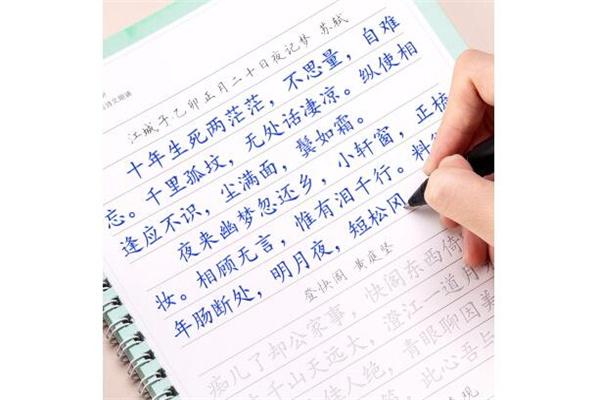 江城子·乙卯正月二十日夜记梦 苏轼
十年生死两茫茫，不思量，自难
忘。千里孤坟，无处话凄凉。纵使相
逢应不识，尘满面，鬓如霜。
夜来幽梦忽还乡，小轩窗，正梳
妆。相顾无言，惟有泪千行。料
年肠断处，明月夜，短松冈
登快阁 黄庭坚
痴儿了却公家事，快阁东西倚
千山天远大，澄江一道月
佳人绝，青眼聊因美
此心吾与